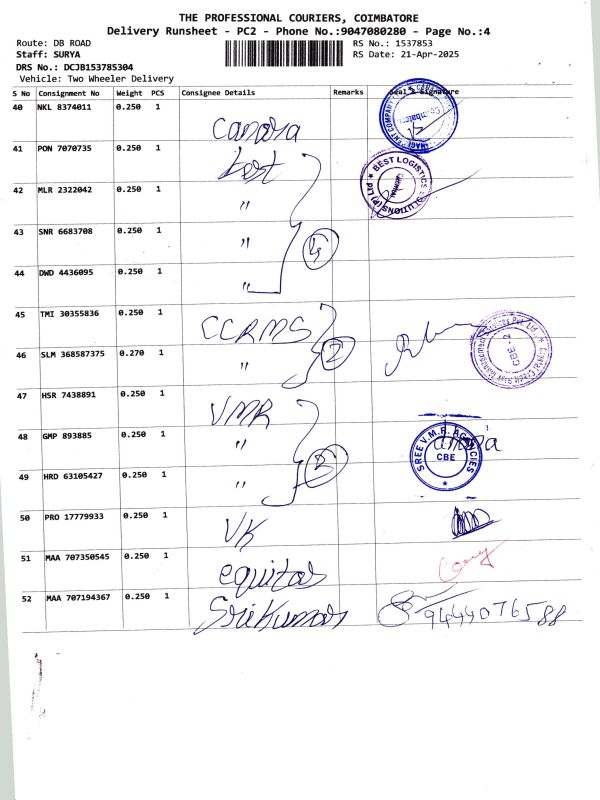 THE PROFESSIONAL COURIERS, COIMBATORE
Delivery Runsheet - PC2 - Phone No.:9047080280 - Page No.:4
Route: DB ROAD RS No.: 1537853
Staff: SURYA RS Date: 21-Apr-2025
DRS No.: DCJB153785304
Vehicle: Two Wheeler Delivery
S No Consignment No Weight PCS Consignee Details Remarks Seal & Signature
40 NKL 8374011 0.250 1 Canara
41 PON 7070735 0.250 1 Best
BEST LOGISTICS SOLUTIONS (P) LTD
42 MLR 2322042 0.250 1 "
43 SNR 6683708 0.250 1 " 4
44 DWD 4436095 0.250 1 "
45 TMI 30355836 0.250 1 CCRMS
CBE-2
46 SLM 368587375 0.270 1 " 2
47 HSR 7438891 0.250 1 VMR
48 GMP 893885 0.250 1 "
SREE V.M.R. AGENCIES CBE
49 HRD 63105427 0.250 1 " 3
50 PRO 17779933 0.250 1 VK
51 MAA 707350545 0.250 1 equitas
52 MAA 707194367 0.250 1 Sri Kumar 9444076588